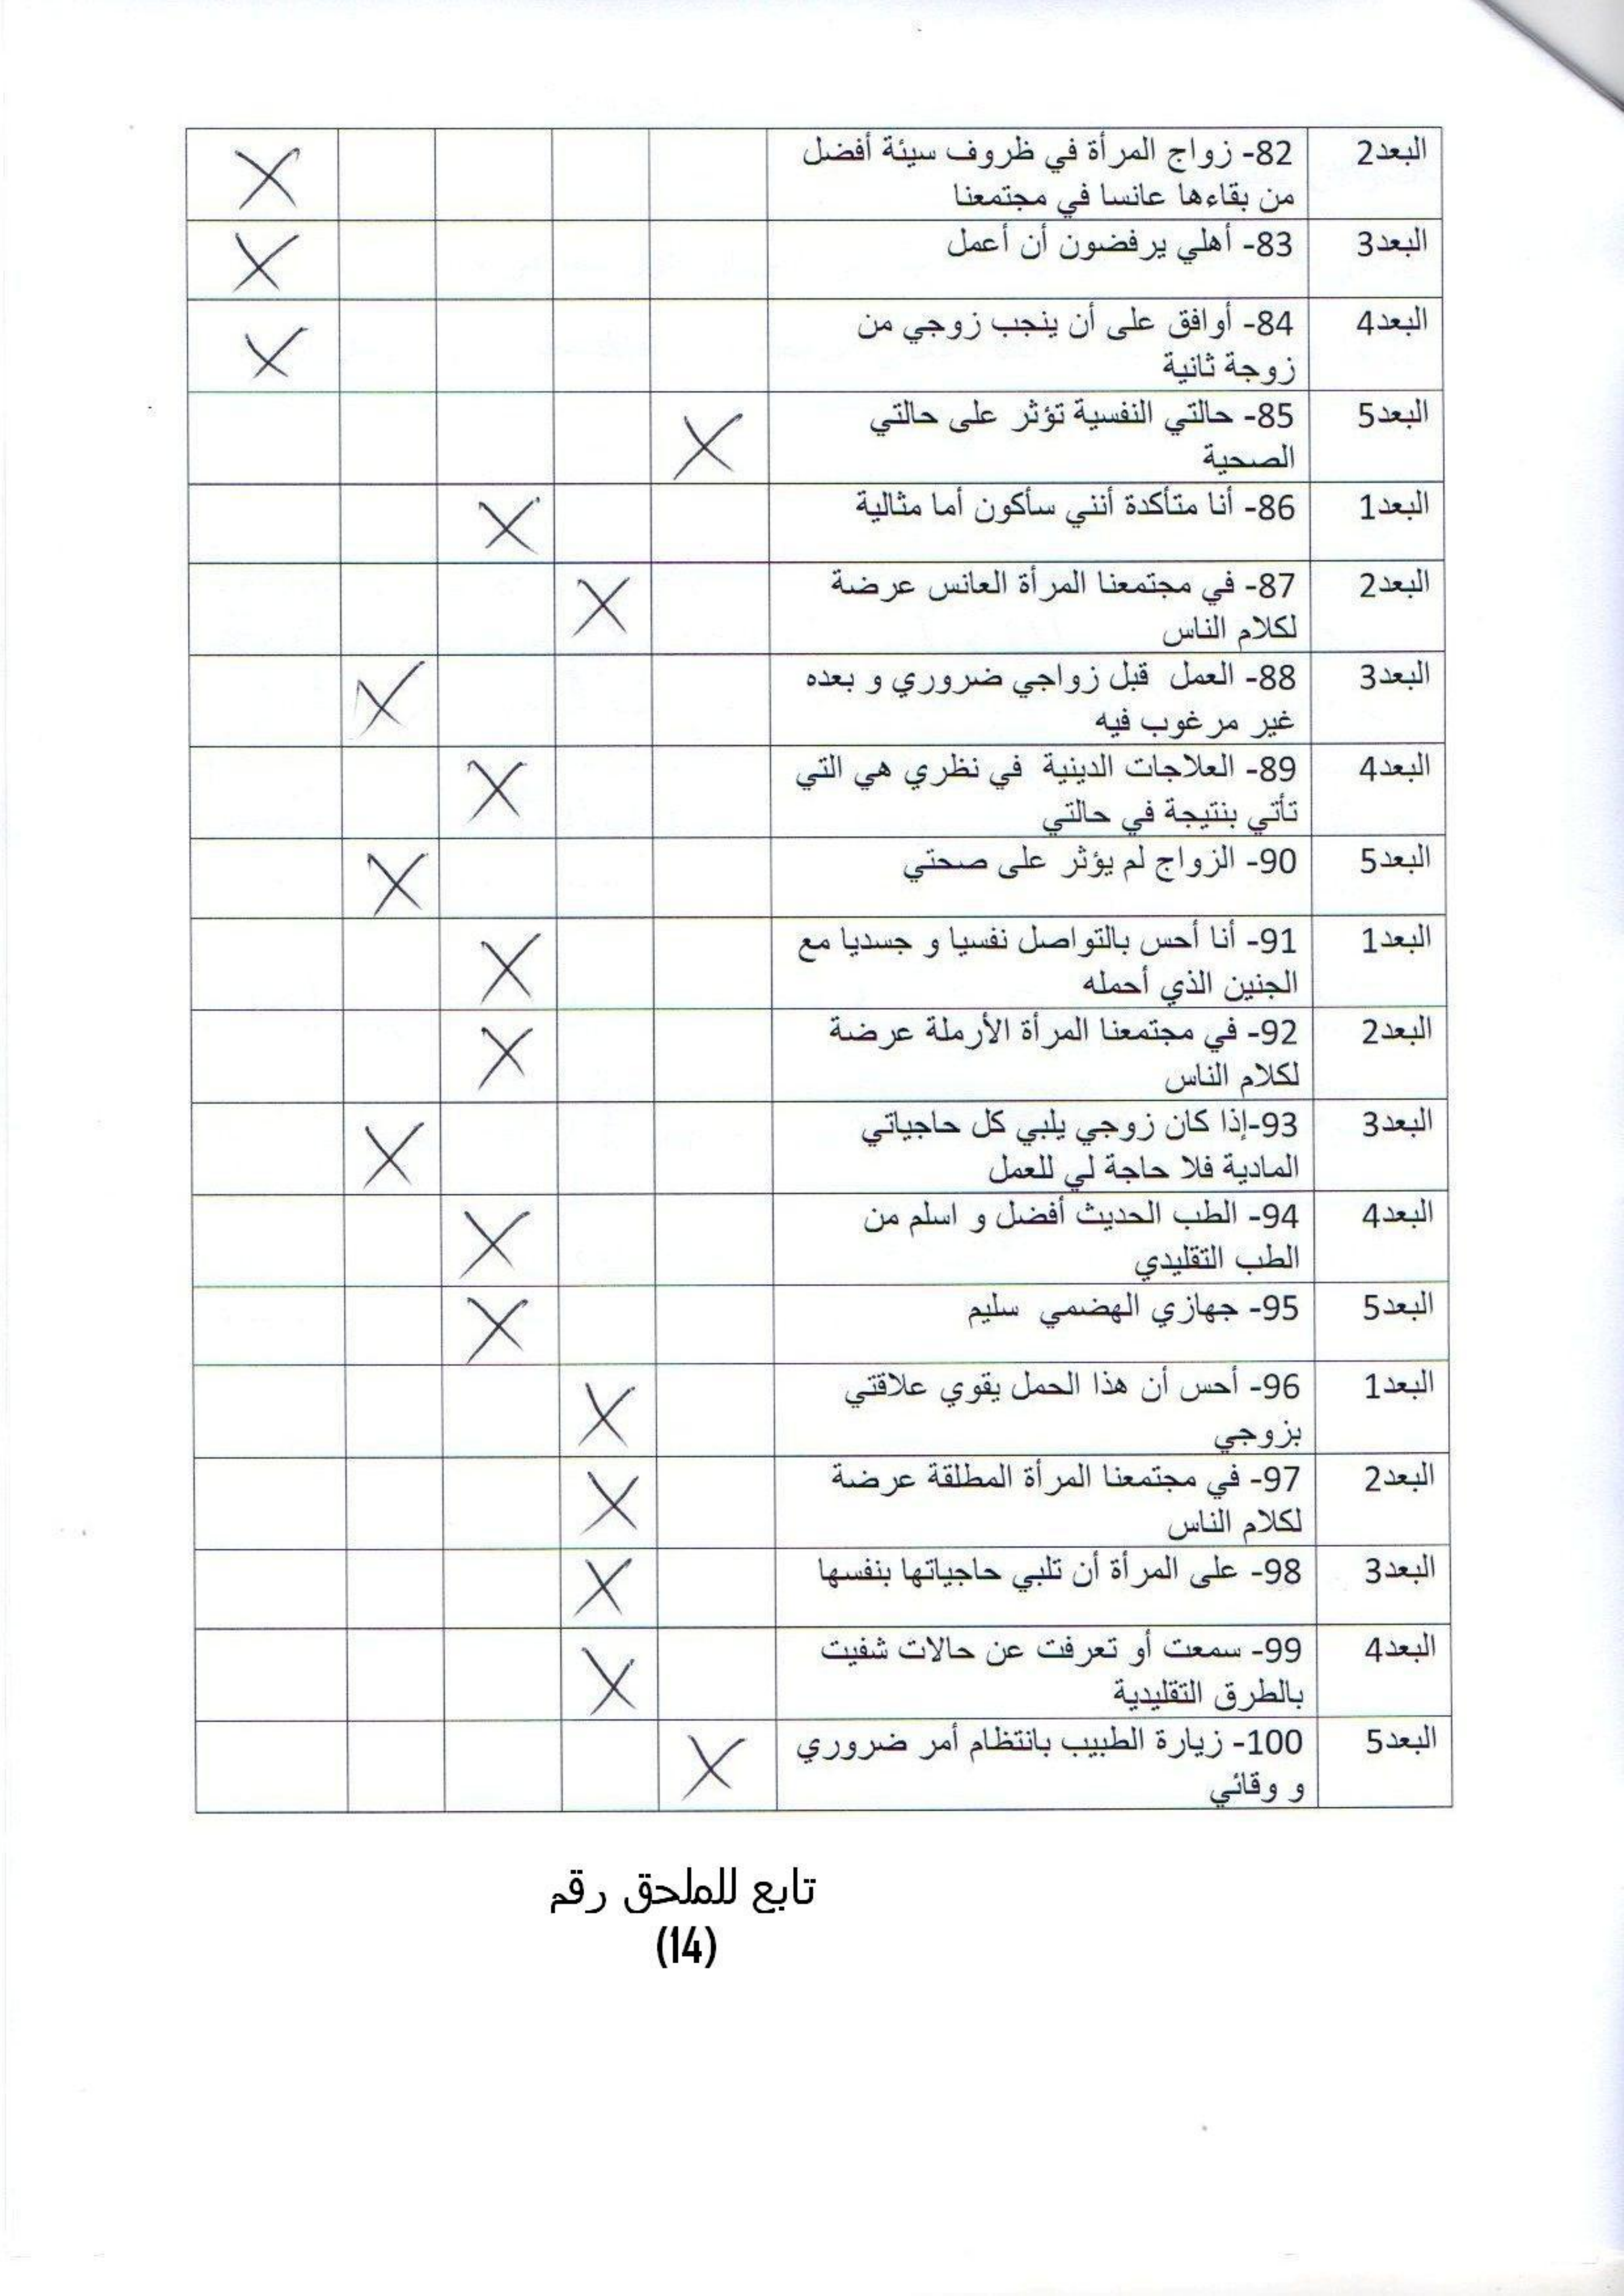 البعد2 82- زواج المرأة في ظروف سيئة أفضل
من بقاءها عانسا في مجتمعنا X
البعد3 83- أهلي يرفضون أن أعمل X
البعد4 84- أوافق على أن ينجب زوجي من
زوجة ثانية X
البعد5 85- حالتي النفسية تؤثر على حالتي
الصحية X
البعد1 86- أنا متأكدة أنني سأكون أما مثالية X
البعد2 87- في مجتمعنا المرأة العانس عرضة
لكلام الناس X
البعد3 88- العمل قبل زواجي ضروري و بعده
غير مرغوب فيه X
البعد4 89- العلاجات الدينية في نظري هي التي
تأتي بنتيجة في حالتي X
البعد5 90- الزواج لم يؤثر على صحتي X
البعد1 91- أنا أحس بالتواصل نفسيا و جسديا مع
الجنين الذي أحمله X
البعد2 92- في مجتمعنا المرأة الأرملة عرضة
لكلام الناس X
البعد3 93-إذا كان زوجي يلبي كل حاجياتي
المادية فلا حاجة لي للعمل X
البعد4 94- الطب الحديث أفضل و اسلم من
الطب التقليدي X
البعد5 95- جهازي الهضمي سليم X
البعد1 96- أحس أن هذا الحمل يقوي علاقتي
بزوجي X
البعد2 97- في مجتمعنا المرأة المطلقة عرضة
لكلام الناس X
البعد3 98- على المرأة أن تلبي حاجياتها بنفسها X
البعد4 99- سمعت أو تعرفت عن حالات شفيت
بالطرق التقليدية X
البعد5 100- زيارة الطبيب بانتظام أمر ضروري
و وقائي X
تابع للملحق رقم
(14)